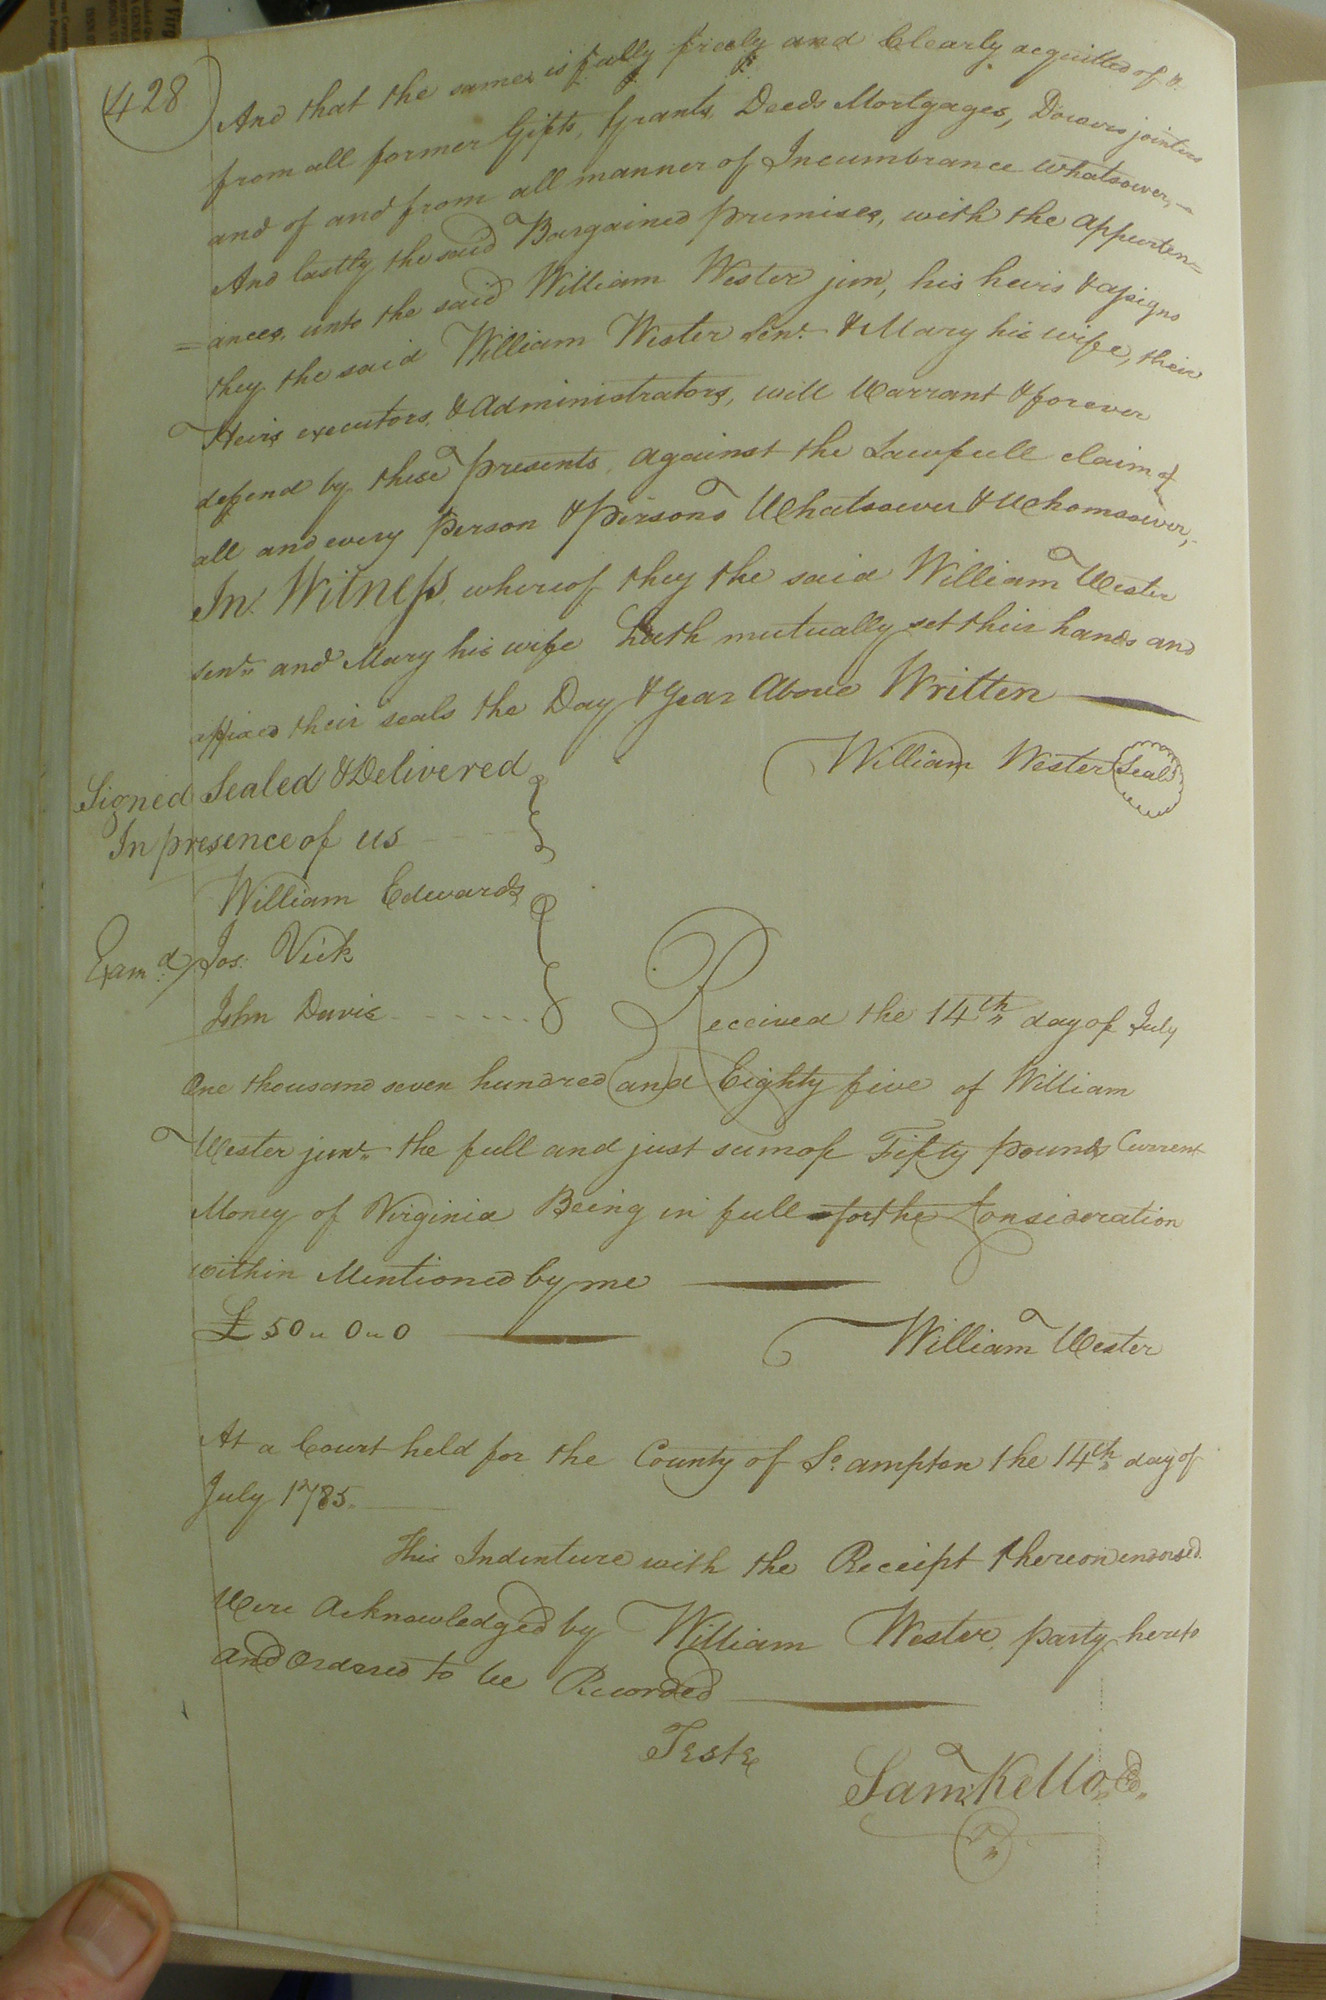 428
And that the same is fully freely and Clearly acquitted of &
from all former Gifts, Grants, Deeds Mortgages, Dowers jointers
and of and from all manner of Incumbrance whatsoever,
And lastly the said Bargained premises, with the appurten=
=ances, unto the said William Wester jun, his heirs & assigns
they the said William Wester Senr. & Mary his wife, their
Heirs executors, & Administrators, will Warrant & forever
defend by these presents, against the Lawfull claim of
all and every Person & Persons Whatsoever & Whomsoever,
In Witness, whereof they the said William Wester
senr. and Mary his wife hath mutually set their hands and
affixed their seals the Day & Year Above Written
William Wester Seal
Signed Sealed & Delivered
In presence of us
William Edwards
Examd. Jos: Vick
John Davis
Received the 14th day of July
One thousand seven hundred and Eighty five of William
Wester junr. the full and just sum of Fifty pounds Current
Money of Virginia Being in full for the Consideration
within Mentioned by me
£50 " 0 " 0
William Wester
At a Court held for the County of So. ampton the 14th day of
July 1785.
This Indenture with the Receipt thereon endorsed
Were Acknowledged by William Wester, party hereto
and Ordered to be Recorded
Teste
Saml. Kello